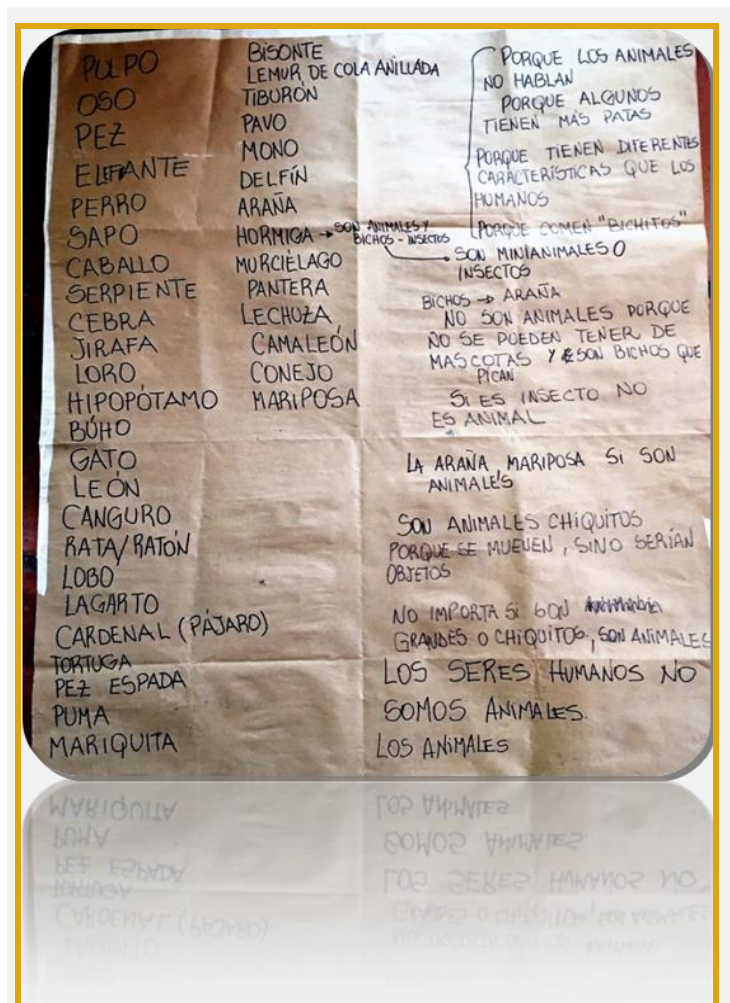 PULPO
OSO
PEZ
ELEFANTE
PERRO
SAPO
CABALLO
SERPIENTE
CEBRA
JIRAFA
LORO
HIPOPÓTAMO
BÚHO
GATO
LEÓN
CANGURO
RATA/RATÓN
LOBO
LAGARTO
CARDENAL (PÁJARO)
TORTUGA
PEZ ESPADA
PUMA
MARIQUITA
BISONTE
LEMUR DE COLA ANILLADA
TIBURÓN
PAVO
MONO
DELFÍN
ARAÑA
HORMIGA → SON ANIMALES Y
BICHOS - INSECTOS
MURCIÉLAGO
PANTERA
LECHUZA
CAMALEÓN
CONEJO
MARIPOSA
PORQUE LOS ANIMALES
NO HABLAN
PORQUE ALGUNOS
TIENEN MÁS PATAS
PORQUE TIENEN DIFERENTES
CARACTERÍSTICAS QUE LOS
HUMANOS
PORQUE COMEN "BICHITOS"
SON MINIANIMALES O
INSECTOS
BICHOS → ARAÑA
NO SON ANIMALES PORQUE
NO SE PUEDEN TENER DE
MASCOTAS Y SON BICHOS QUE
PICAN
SI ES INSECTO NO
ES ANIMAL
LA ARAÑA, MARIPOSA SI SON
ANIMALES
SON ANIMALES CHIQUITOS
PORQUE SE MUEVEN, SINO SERÍAN
OBJETOS
NO IMPORTA SI SON
GRANDES O CHIQUITOS, SON ANIMALES
LOS SERES HUMANOS NO
SOMOS ANIMALES.
LOS ANIMALES